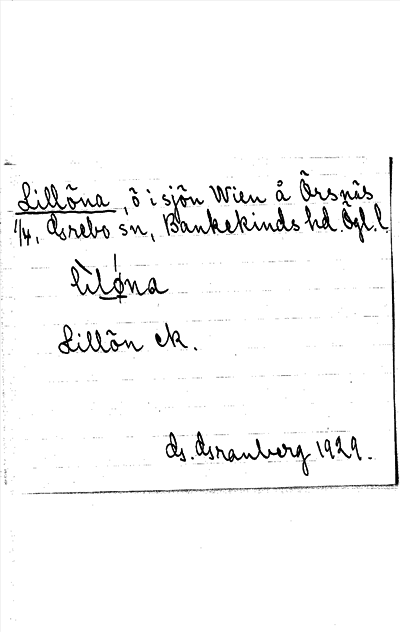 Lillöna, ö i sjön Wien å Örsnäs
1/4, Grebo sn, Bankekinds hd. Ögl. l
lìlǿna
Lillön ek.
G. Granberg 1929.